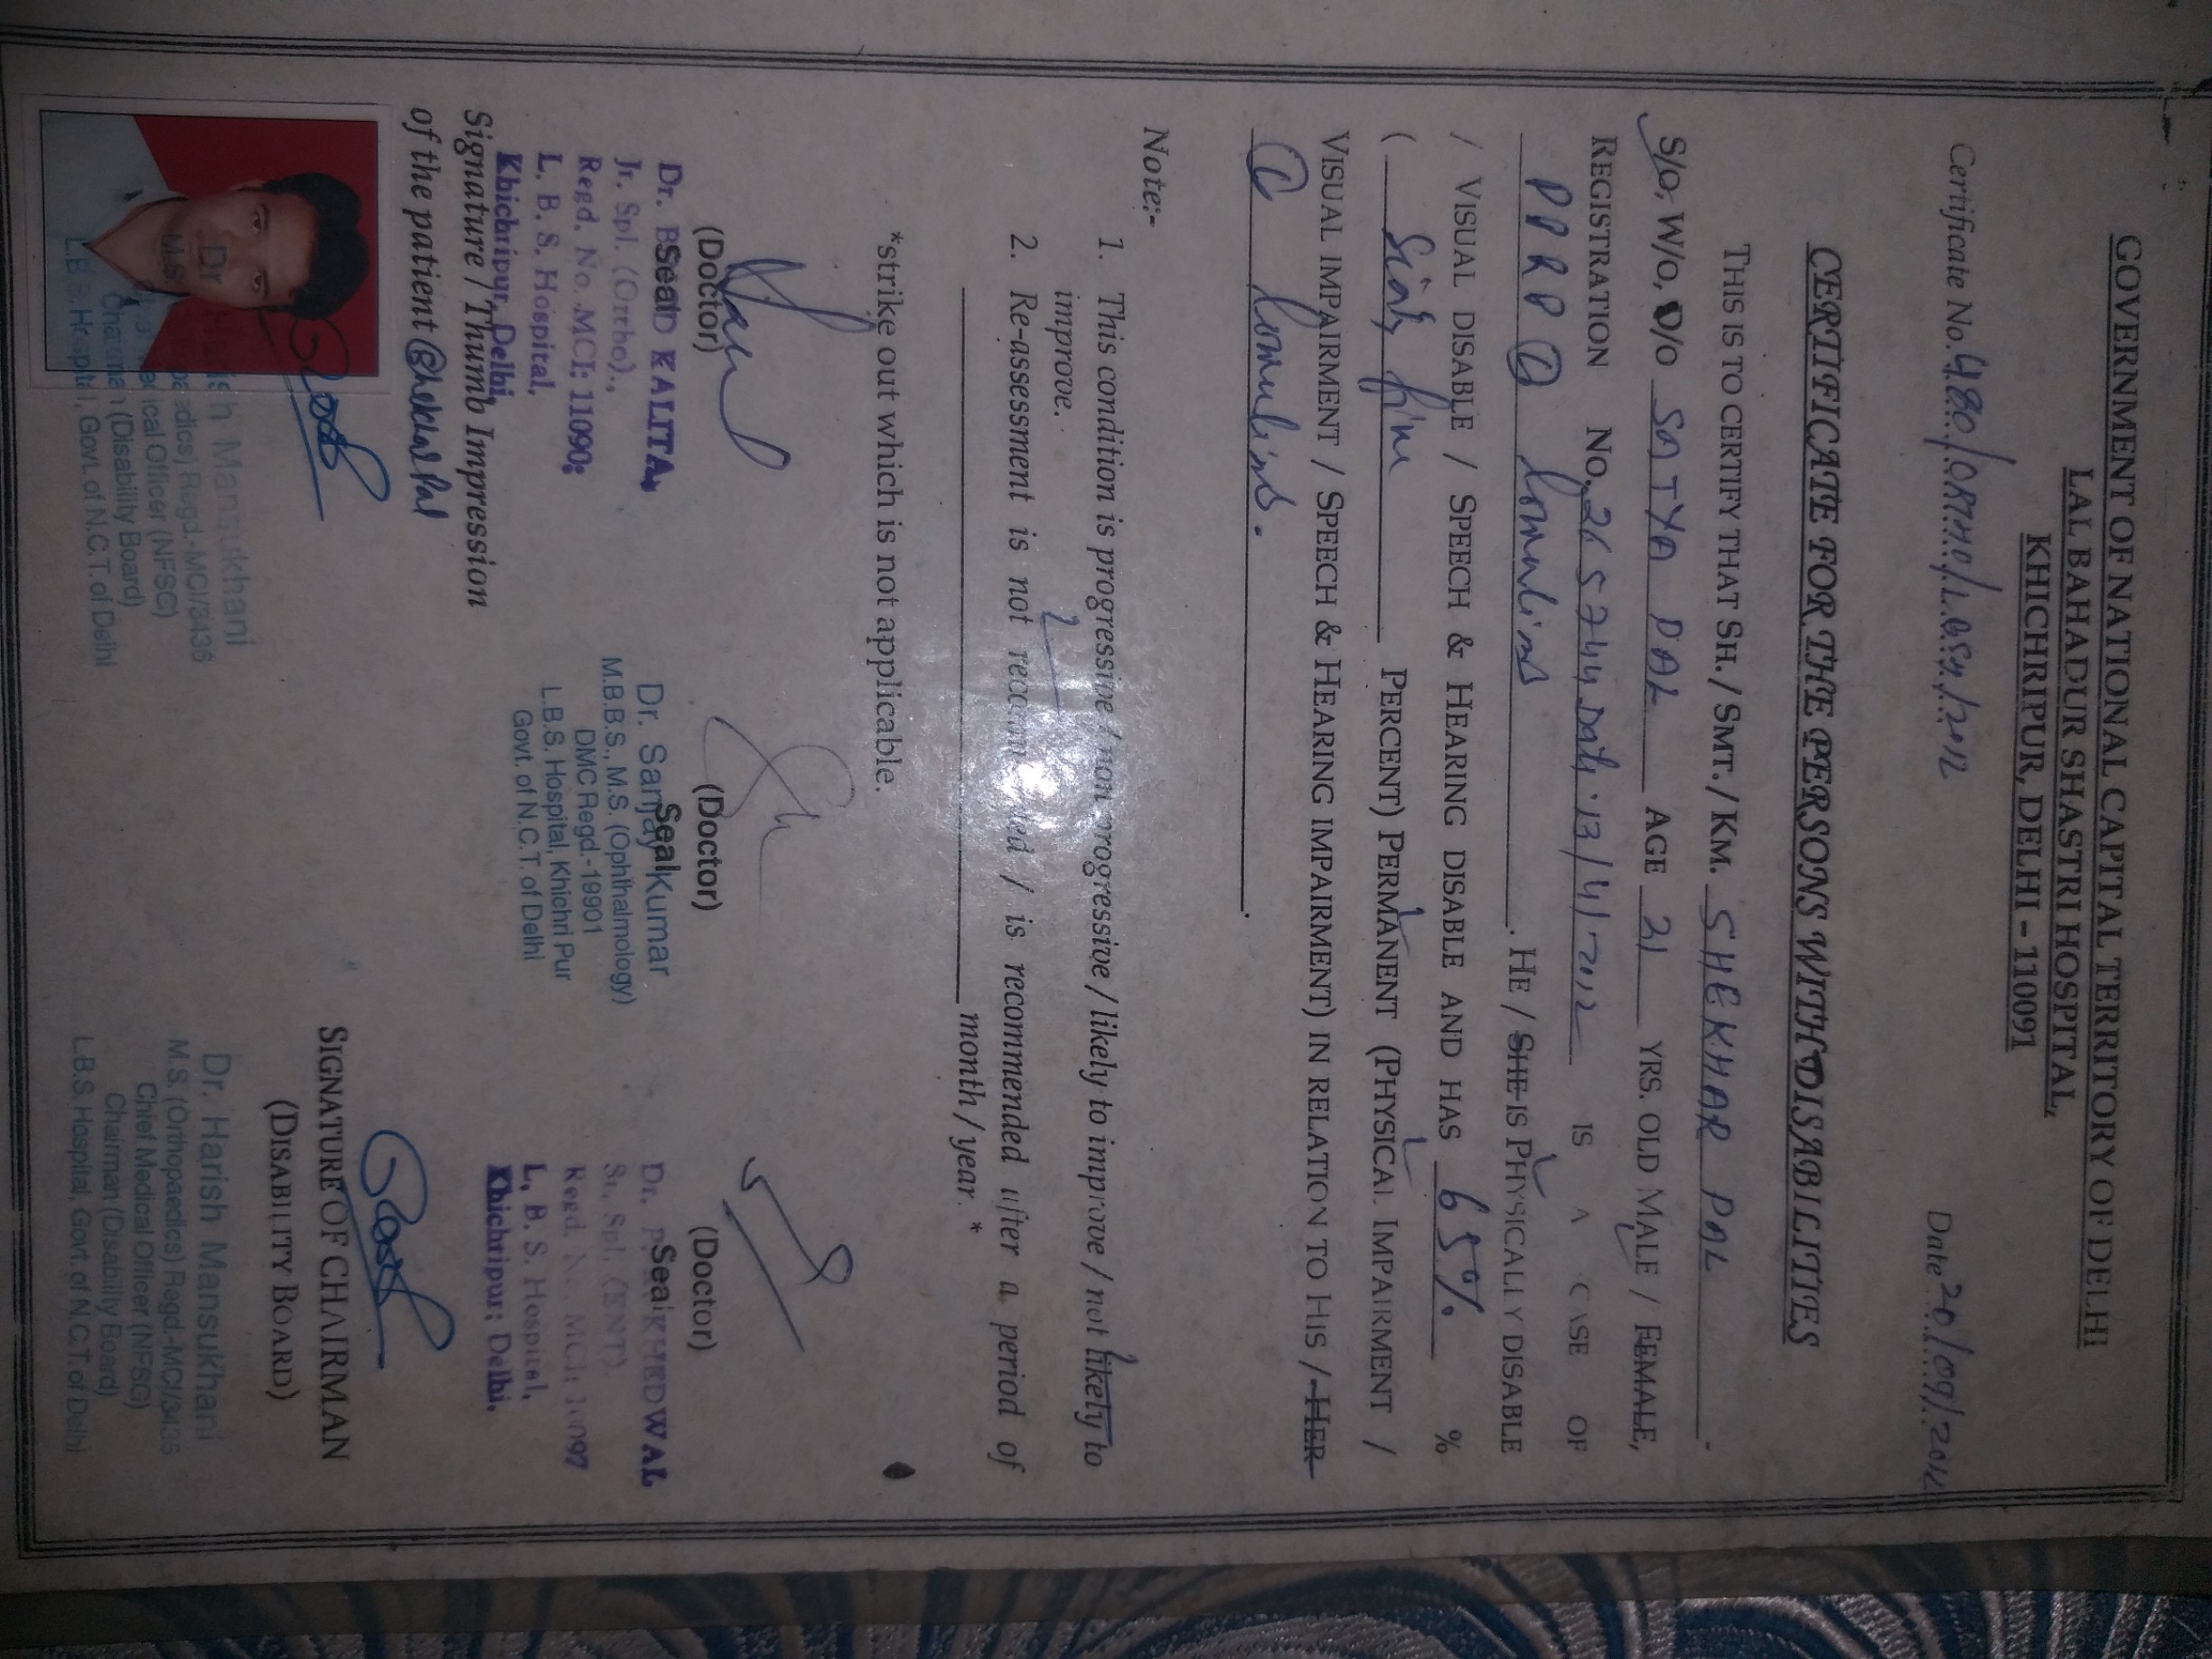 GOVERNMENT OF NATIONAL CAPITAL TERRITORY OF DELHI
LAL BAHADUR SHASTRI HOSPITAL,
KHICHRIPUR, DELHI – 110091
Certificate No. 480/ Date 20/09/2012
CERTIFICATE FOR THE PERSONS WITH DISABILITIES
THIS IS TO CERTIFY THAT SH. / SMT. / KM. SHEKHAR PAL
S/O, W/O, D/O SATYA PAL AGE 21 YRS. OLD MALE / FEMALE,
REGISTRATION No. 265744 Date 13/4/2012 IS A CASE OF
PPRP . HE / SHE IS PHYSICALLY DISABLE
/ VISUAL DISABLE / SPEECH & HEARING DISABLE AND HAS 65% %
( Sixty five PERCENT) PERMANENT (PHYSICAL IMPAIRMENT /
VISUAL IMPAIRMENT / SPEECH & HEARING IMPAIRMENT) IN RELATION TO HIS / HER
.
Note:-
1. This condition is progressive / non progressive / likely to improve / not likely to
improve.
2. Re-assessment is not recommended / is recommended after a period of
month / year. *
*strike out which is not applicable.
(Doctor) (Doctor) (Doctor)
Seal Seal Seal
Dr. KALITA,
Jr. Spl. (Ortho).,
Regd. No. MCI: 11090;
L. B. S. Hospital,
Khichripur, Delhi,
Dr. Sanjay Kumar
M.B.B.S., M.S. (Ophthalmology)
DMC Regd.-19901
L.B.S. Hospital, Khichri Pur
Govt. of N.C.T. of Delhi
Dr. KHEDWAL
Sr. Spl. (ENT).
Regd. No. MCI:
L. B. S. Hospital,
Khichripur; Delhi.
Signature / Thumb Impression
of the patient Shekhar Pal
SIGNATURE OF CHAIRMAN
(DISABILITY BOARD)
Dr. Harish Mansukhani
M.S. (Orthopaedics) Regd.-MCI/3436
Chief Medical Officer (NFSG)
Chairman (Disability Board)
L.B.S. Hospital, Govt. of N.C.T. of Delhi
Dr. Harish Mansukhani
M.S. (Orthopaedics) Regd.-MCI/3436
Chief Medical Officer (NFSG)
Chairman (Disability Board)
L.B.S. Hospital, Govt. of N.C.T. of Delhi